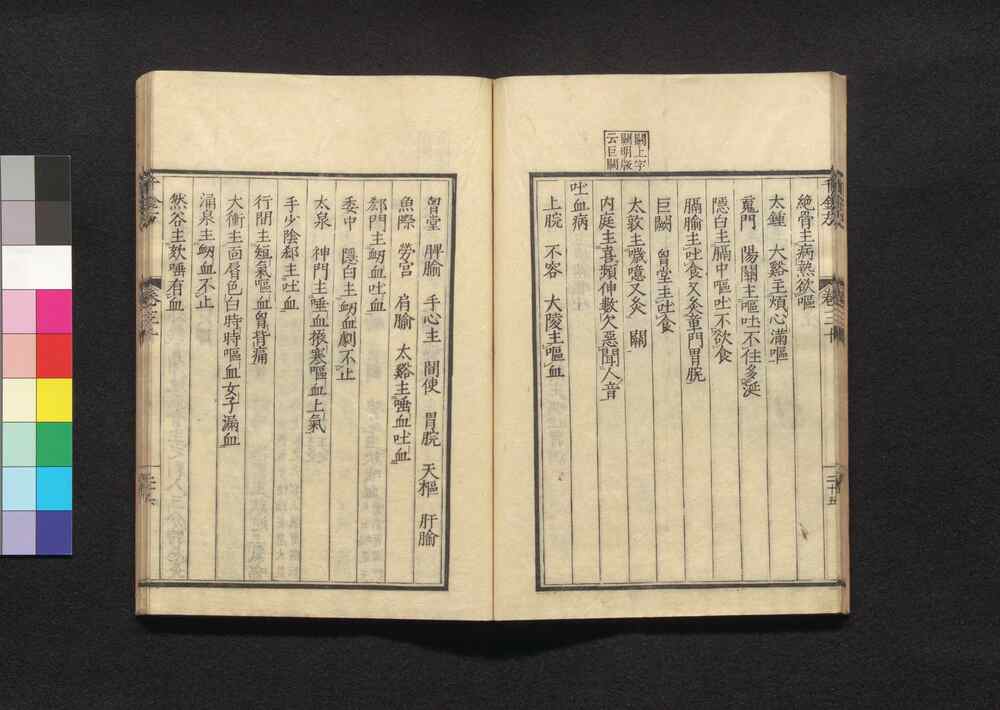 關上字
闕明版
云巨闕
絶骨主病熱欲嘔
太鍾 大谿主煩心滿嘔
䰟門 陽關主嘔吐不住多涎
隱白主膈中嘔吐不欲食
膈腧主吐食又灸章門胃脘
巨闕 胷堂主吐食
太敦主噦噫又灸 關
内庭主喜頻伸數欠惡聞人音
吐血病
上脘 不容 大陵主嘔血
胷堂 脾腧 手心主 間使 胃脘 天樞 肝腧
魚際 勞宮 肩腧 太谿主唾血吐血
郄門主衂血吐血
委中 隱白主衂血劇不止
太泉 神門主唾血振寒嘔血上氣
手少陰郄主吐血
行間主短氣嘔血胷背痛
太衝主面脣色白時時嘔血女子漏血
涌泉主衂血不止
然谷主欬唾有血